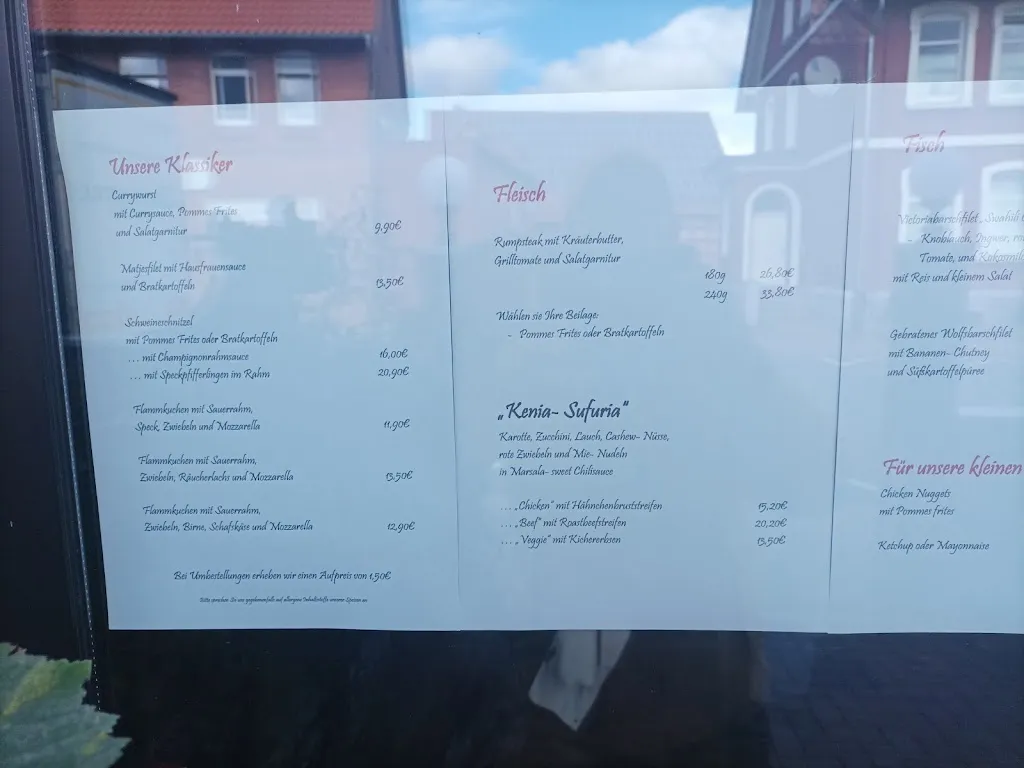 Unsere Klassiker
Currywurst
mit Currysauce, Pommes Frites
und Salatgarnitur 9,90€
Matjesfilet mit Hausfrauensauce
und Bratkartoffeln 13,50€
Schweineschnitzel
mit Pommes Frites oder Bratkartoffeln
... mit Champignonrahmsauce 16,00€
... mit Speckpfifferlingen im Rahm 20,90€
Flammkuchen mit Sauerrahm,
Speck, Zwiebeln und Mozzarella 11,90€
Flammkuchen mit Sauerrahm,
Zwiebeln, Räucherlachs und Mozzarella 13,50€
Flammkuchen mit Sauerrahm,
Zwiebeln, Birne, Schafskäse und Mozzarella 12,90€
Bei Umbestellungen erheben wir einen Aufpreis von 1,50€
Bitte sprechen Sie uns gegebenenfalls auf allergene Inhaltsstoffe unserer Speisen an
Fleisch
Rumpsteak mit Kräuterbutter,
Grilltomate und Salatgarnitur
180g 26,80€
240g 33,80€
Wählen sie Ihre Beilage:
- Pommes Frites oder Bratkartoffeln
„Kenia- Sufuria"
Karotte, Zucchini, Lauch, Cashew- Nüsse,
rote Zwiebeln und Mie- Nudeln
in Marsala- sweet Chilisauce
... „Chicken" mit Hähnchenbruststreifen 15,20€
... „Beef" mit Roastbeefstreifen 20,20€
... „Veggie" mit Kichererbsen 13,50€
Fisch
Victoriabarschfilet „Swahili
- Knoblauch, Ingwer,
Tomate, und
mit Reis und kleinem Salat
Gebratenes Wolfsbarschfilet
mit Bananen- Chutney
und Süßkartoffelpüree
Für unsere kleinen
Chicken Nuggets
mit Pommes frites
Ketchup oder Mayonnaise